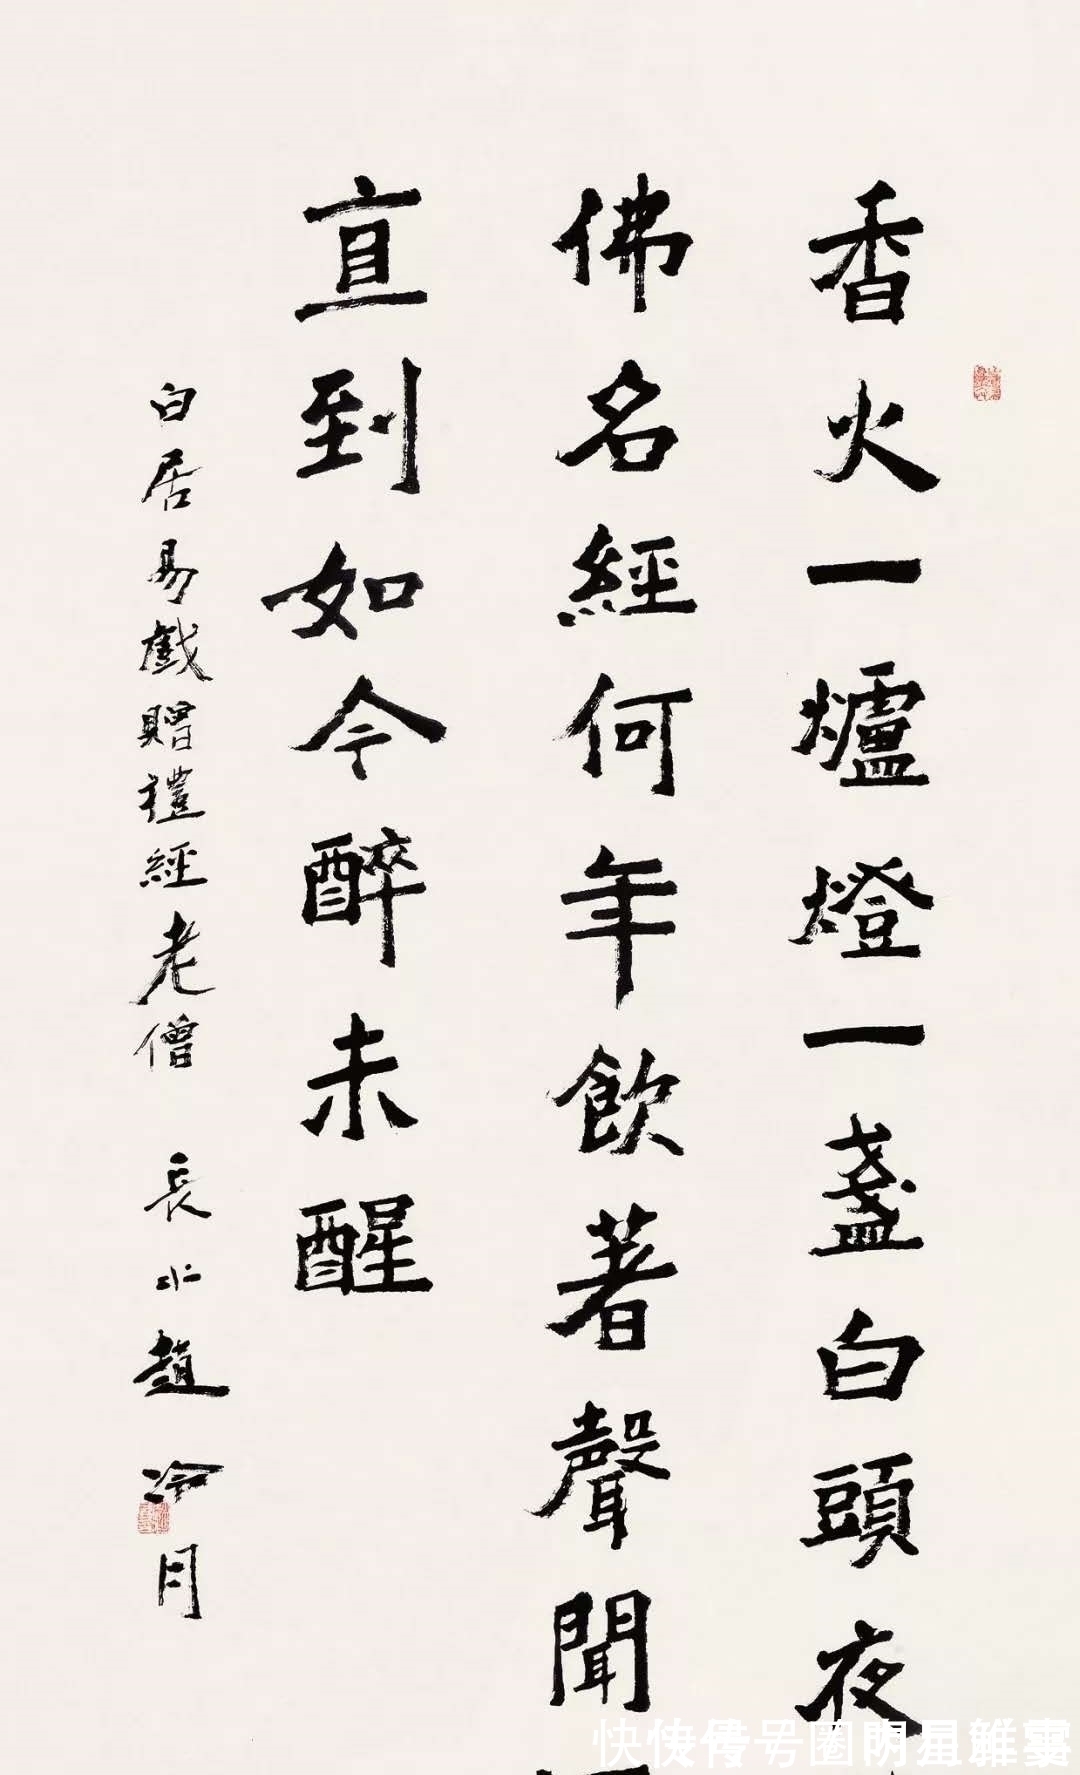 香火一爐燈一盞白頭夜
佛名經何年飲著聲聞
直到如今醉未醒
白居易戲贈禮經老僧 長水趙冷月